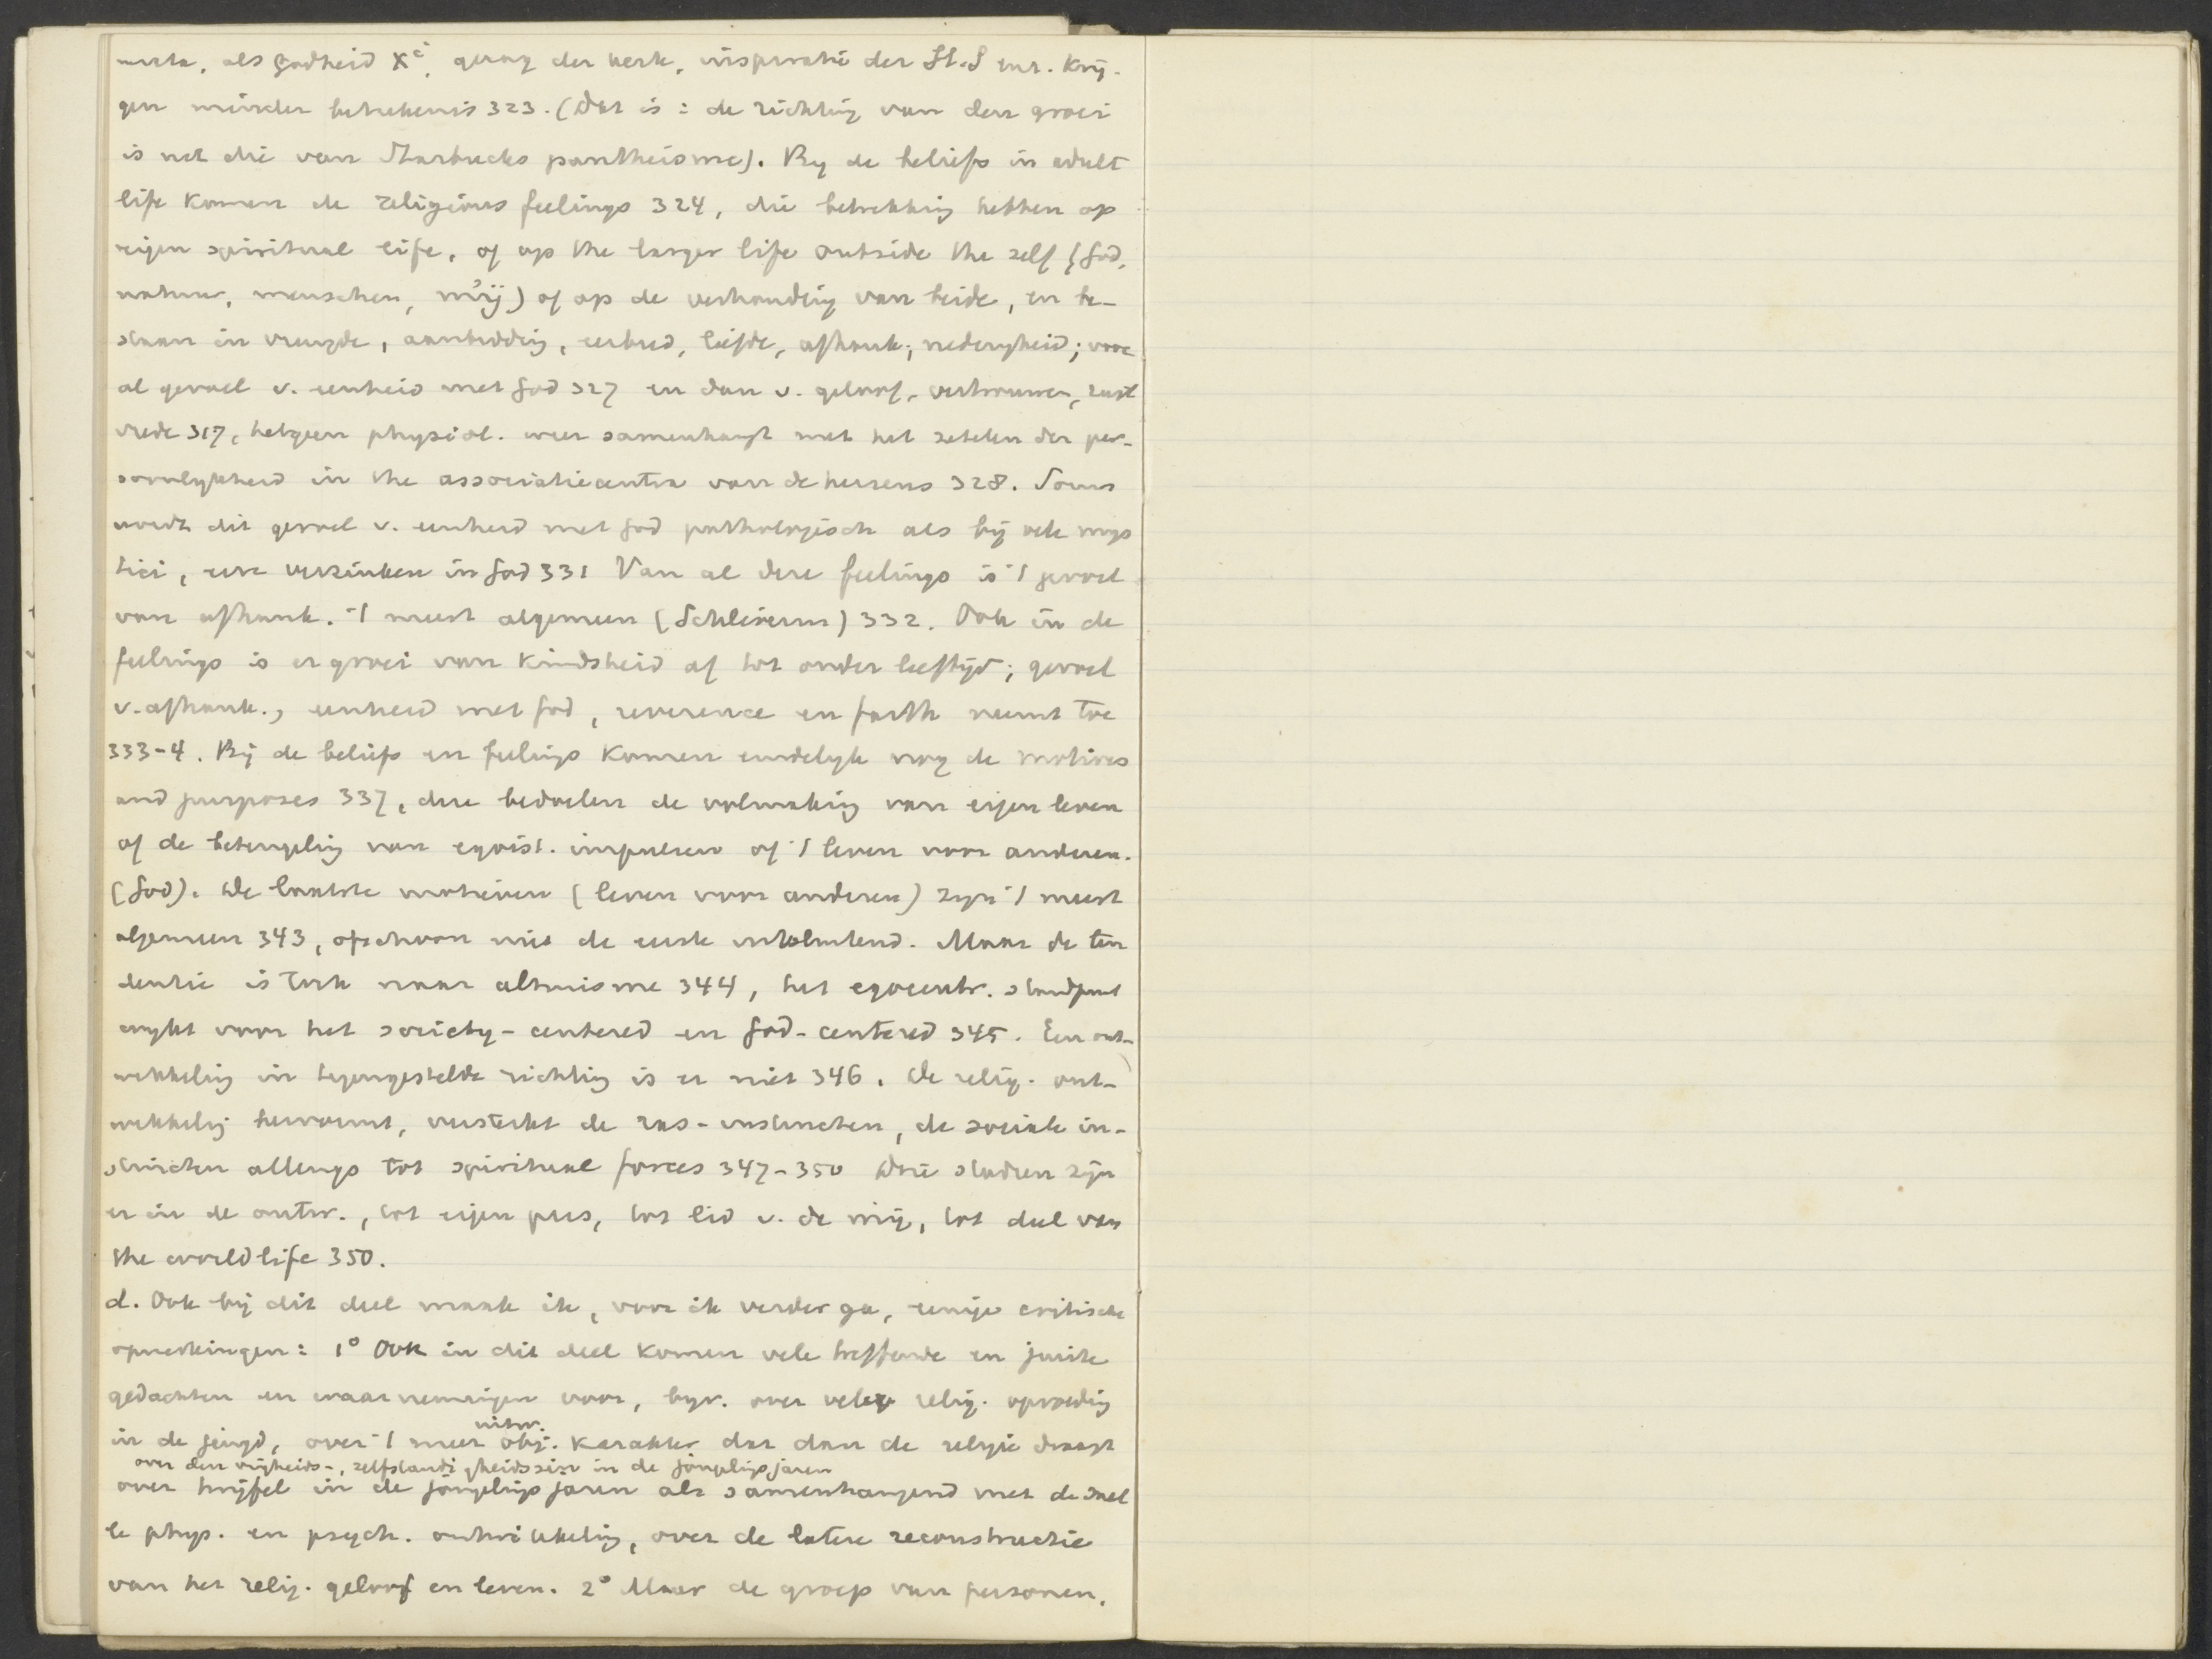 als Godheid Xi, gezag der kerk, inspiratie der H.S enz. krij-
gen minder betekenis 323. (Dat is: de richting van den groei
is niet die van Starbucks pantheisme). By de beliefs in adult
life komen de religious feelings 324, die betrekking hebben op
eigen spiritual life, of op the larger life outside the self (God,
natuur, menschen, mij) of op de verhouding van beide, en be-
staan in vreugde, aanbidding, eerbied, liefde, afhank; nederigheid; voor
al gevoel v. eenheid met God 327 en dan v. geloof, vertrouwen, rust
vrede 317, hetgeen physiol. weer samenhangt met het zetelen der per-
soonlykheid in the associatiecentra van de hersens 328. Soms
wordt dit gevoel v. eenheid met God pathologisch als bij vele mys
tici, een verzinken in God 331 Van al deze feelings is 't gevoel
van afhank. 't meest algemeen (Schleierm) 332. Ook in de
feelings is er groei van kindsheid af tot ouder leeftijd; gevoel
v. afhank., eenheid met God, reverence en faith neemt toe
333-4. Bij de beliefs en feelings komen eindelyk nog de motives
and purposes 337, deze bedoelen de volmaking van eigen leven
of de beteugeling van egoist. impulsen of 't leven voor anderen.
(God). De laatste motieven (leven voor anderen) zyn 't meest
algemeen 343, ofschoon niet de eerste uitsluitend. Maar de ten
dentie is toch naar altruisme 344, het egocentr. standpunt
wykt voor het society-centered en God-centered 345. Een ont-
wikkeling in tegengestelde richting is er niet 346. De relig. ont-
wikkeling hervormt, versterkt de ras-instincten, de sociale in-
stincten allengs tot spiritual forces 347-350 Drie stadien zijn
er in de ontw., tot eigen pers, tot lid v. de mij, tot deel van
the world life 350.
d. Ook bij dit deel maak ik, voor ik verder ga, eenige critische
opmerkingen: 1° Ook in dit deel komen vele treffende en juiste
gedachten en waarnemingen voor, byv. over relig. opvoeding
uitw.
in de jeugd, over 't meer obj. karakter dat dan de religie draagt
over den vrijheids-, zelfstandigheidszin in de jongelingsjaren
over twijfel in de jongelingsjaren als samenhangend met de snel
le phys. en psych. ontwikkeling, over de latere reconstructie
van het relig. geloof en leven. 2° Maar de groep van personen,